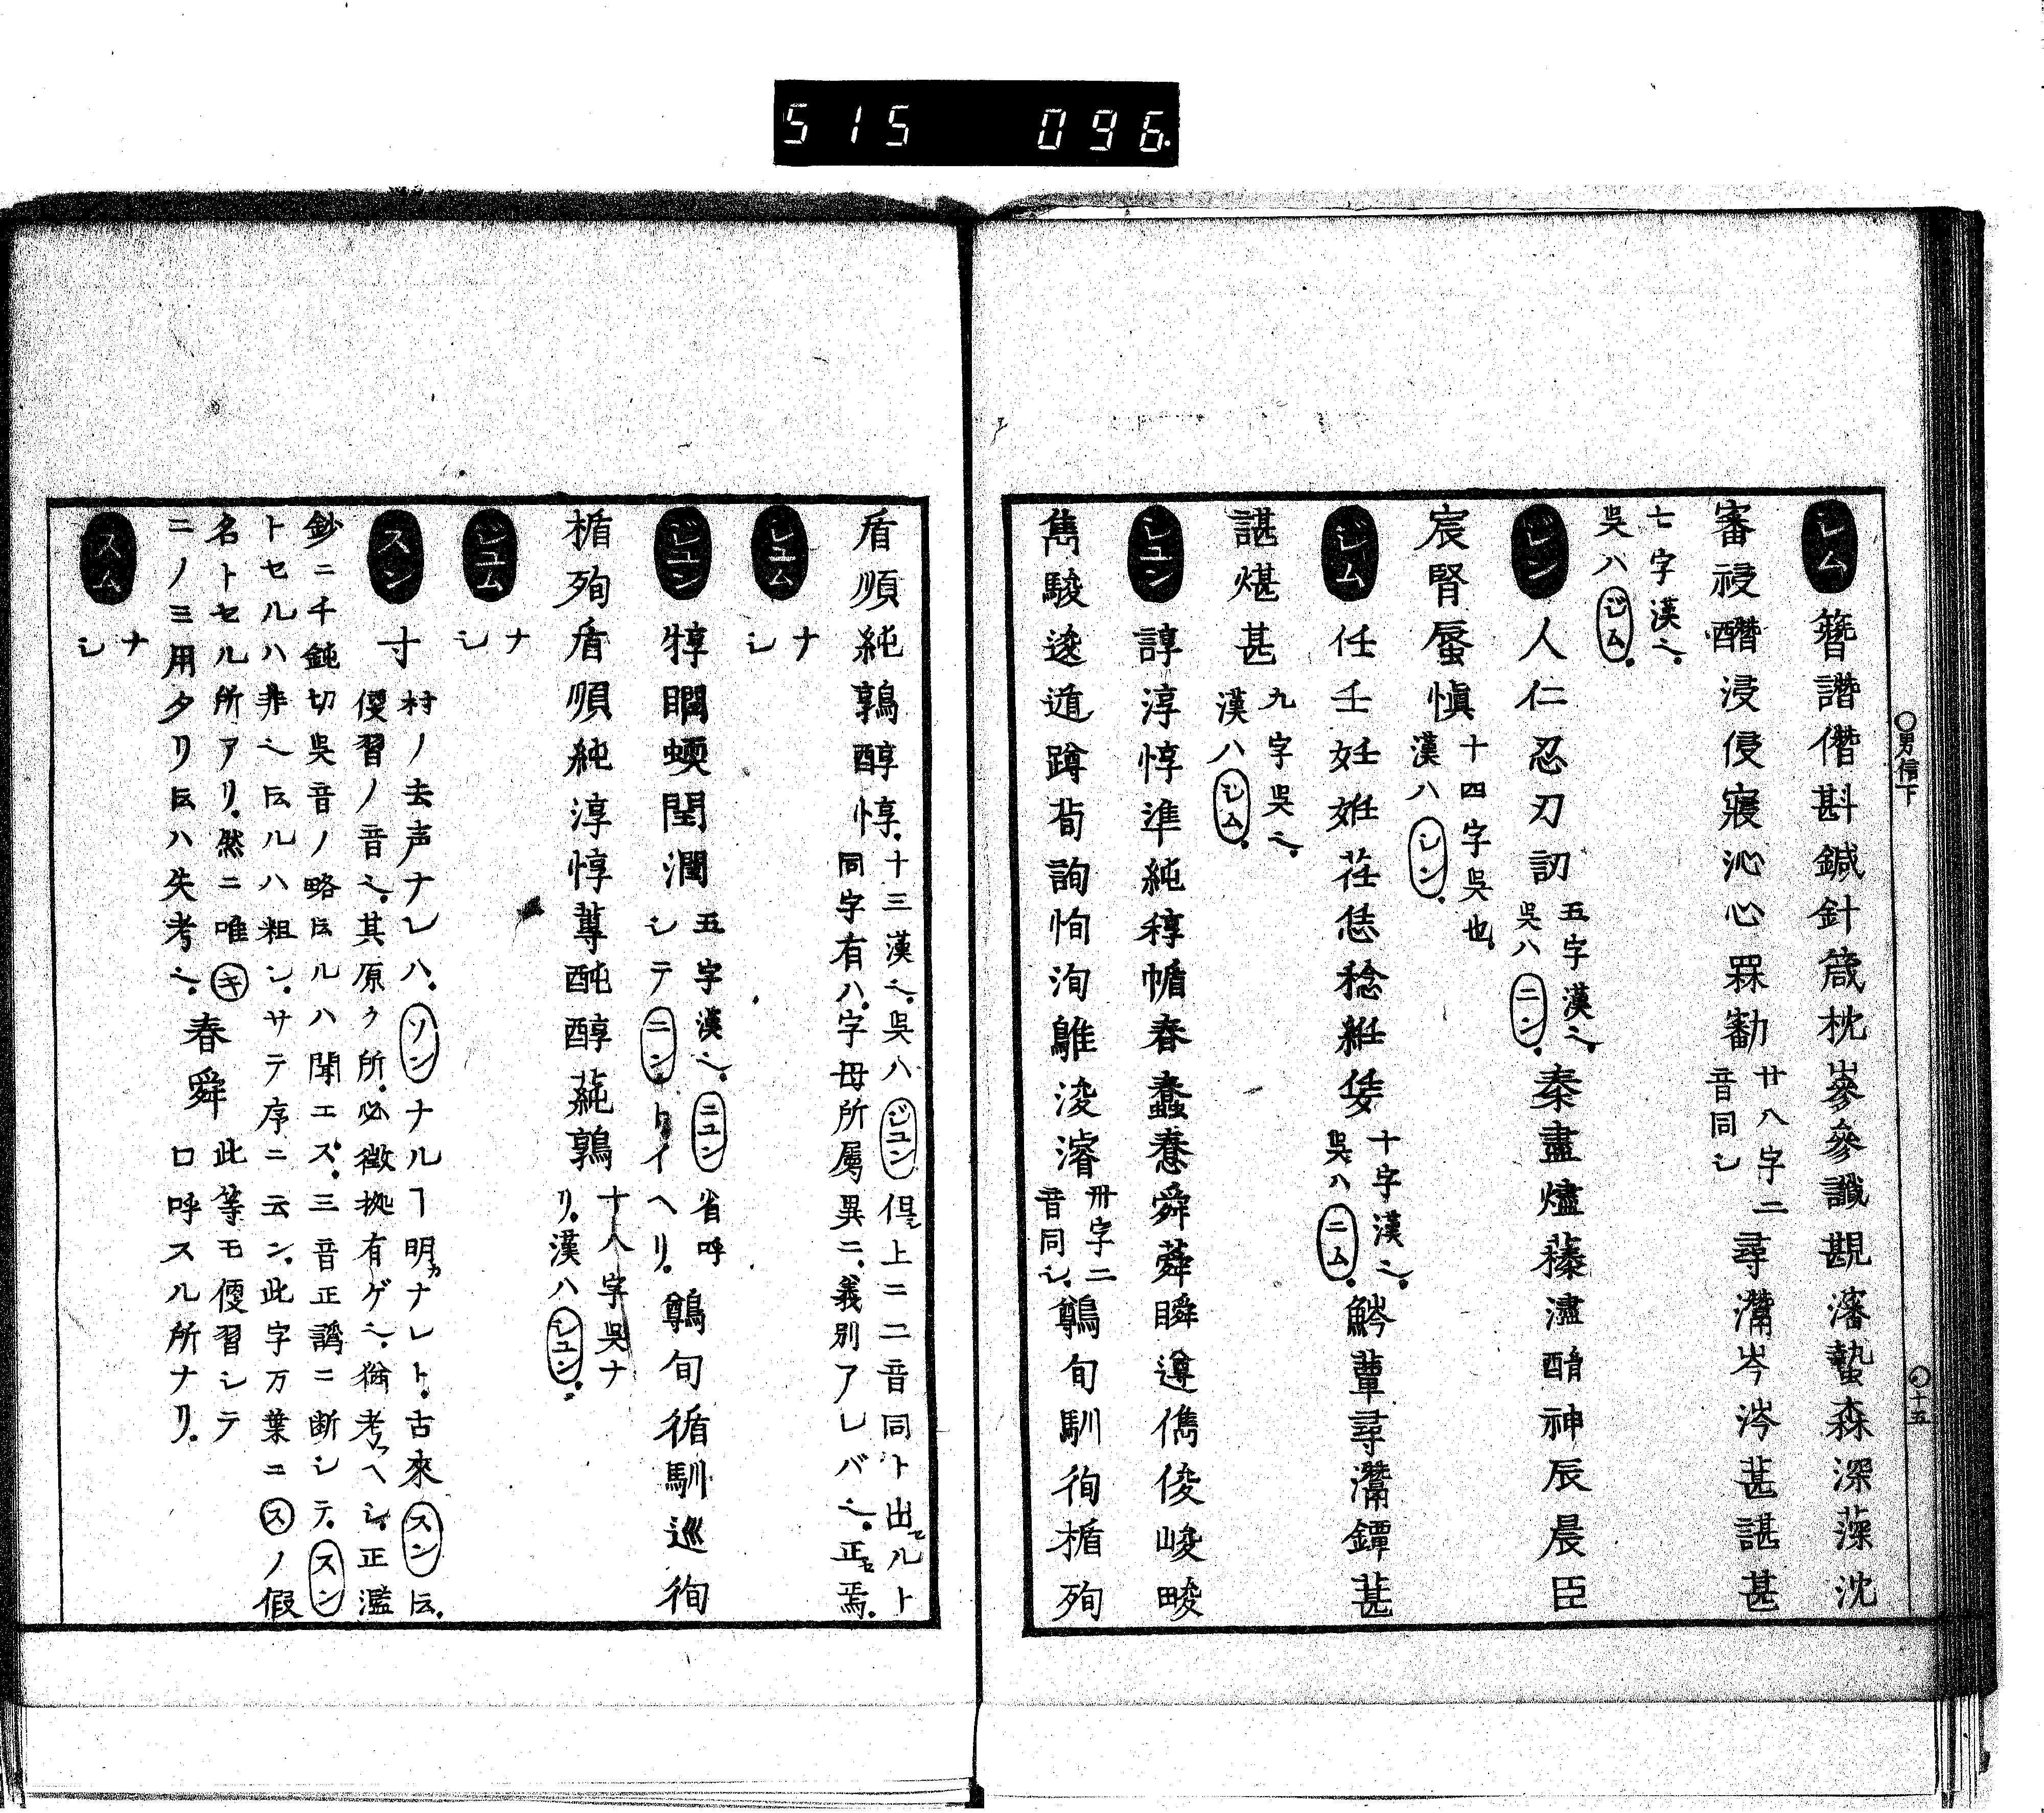 515 096.
○男信下
○十五
シム 簪譖僭斟鍼針箴枕嵾參讖覘瀋蟄森深蔆沈
審祲醋浸侵寢沁心罧勸 廿八字二音同シ 尋灊岑涔葚諶甚
七字漢也。吳ハジム。
ジン 人仁忍刃訒 五字漢也。吳ハニン。 秦盡燼蓁濜神辰晨臣
宸腎蜃愼 十四字吳也。漢ハシン。
ジム 任壬妊姙荏恁稔紝 十字漢也。吳ハニム。 鱏蕈尋灊鐔葚
諶煁甚 九字吳也。漢ハシム。
シュン 諄淳惇準純稕春蠢惷舜蕣瞬遵儁俊峻畯
雋駿逡遁蹲荀詢恂洵鵻浚濬 卅字二音同シ。 鷷旬馴徇楯殉
盾順純鶉醇惇。十三漢也。吳ハジュン 但上ニ二音同ト出セルト
同字有ハ。字母所屬異ニ、義別アレバ也。正セ焉。
シュム ナシ
ジュン 犉瞤蝡閏潤 五字漢也。ニュン省呼シテニントイヘリ。 鷷旬循馴巡徇
楯殉盾順純淳惇蓴酏醇蒓鶉 十八字吳ナリ。漢ハシュン。
ジュム ナシ
スン 寸 村ノ去声ナレハ。ソンナルヿ明カナレト。古來スン𪜈。
便習ノ音也。其原ク所。必徴拠有ゲ也。猶考ヘシ。正濫
鈔ニ千鈍切吳音ノ略𪜈ルハ聞エス。三音正譌ニ断シテ。スン
トセルハ非也𪜈ルハ粗シ。サテ序ニ云ン。此字万葉ニスノ假
名トセル所アリ。然ニ唯キニノミ用タリ𪜈ハ失考也。 春舜 此等モ便習シテ口呼スル所ナリ。
スム ナシ